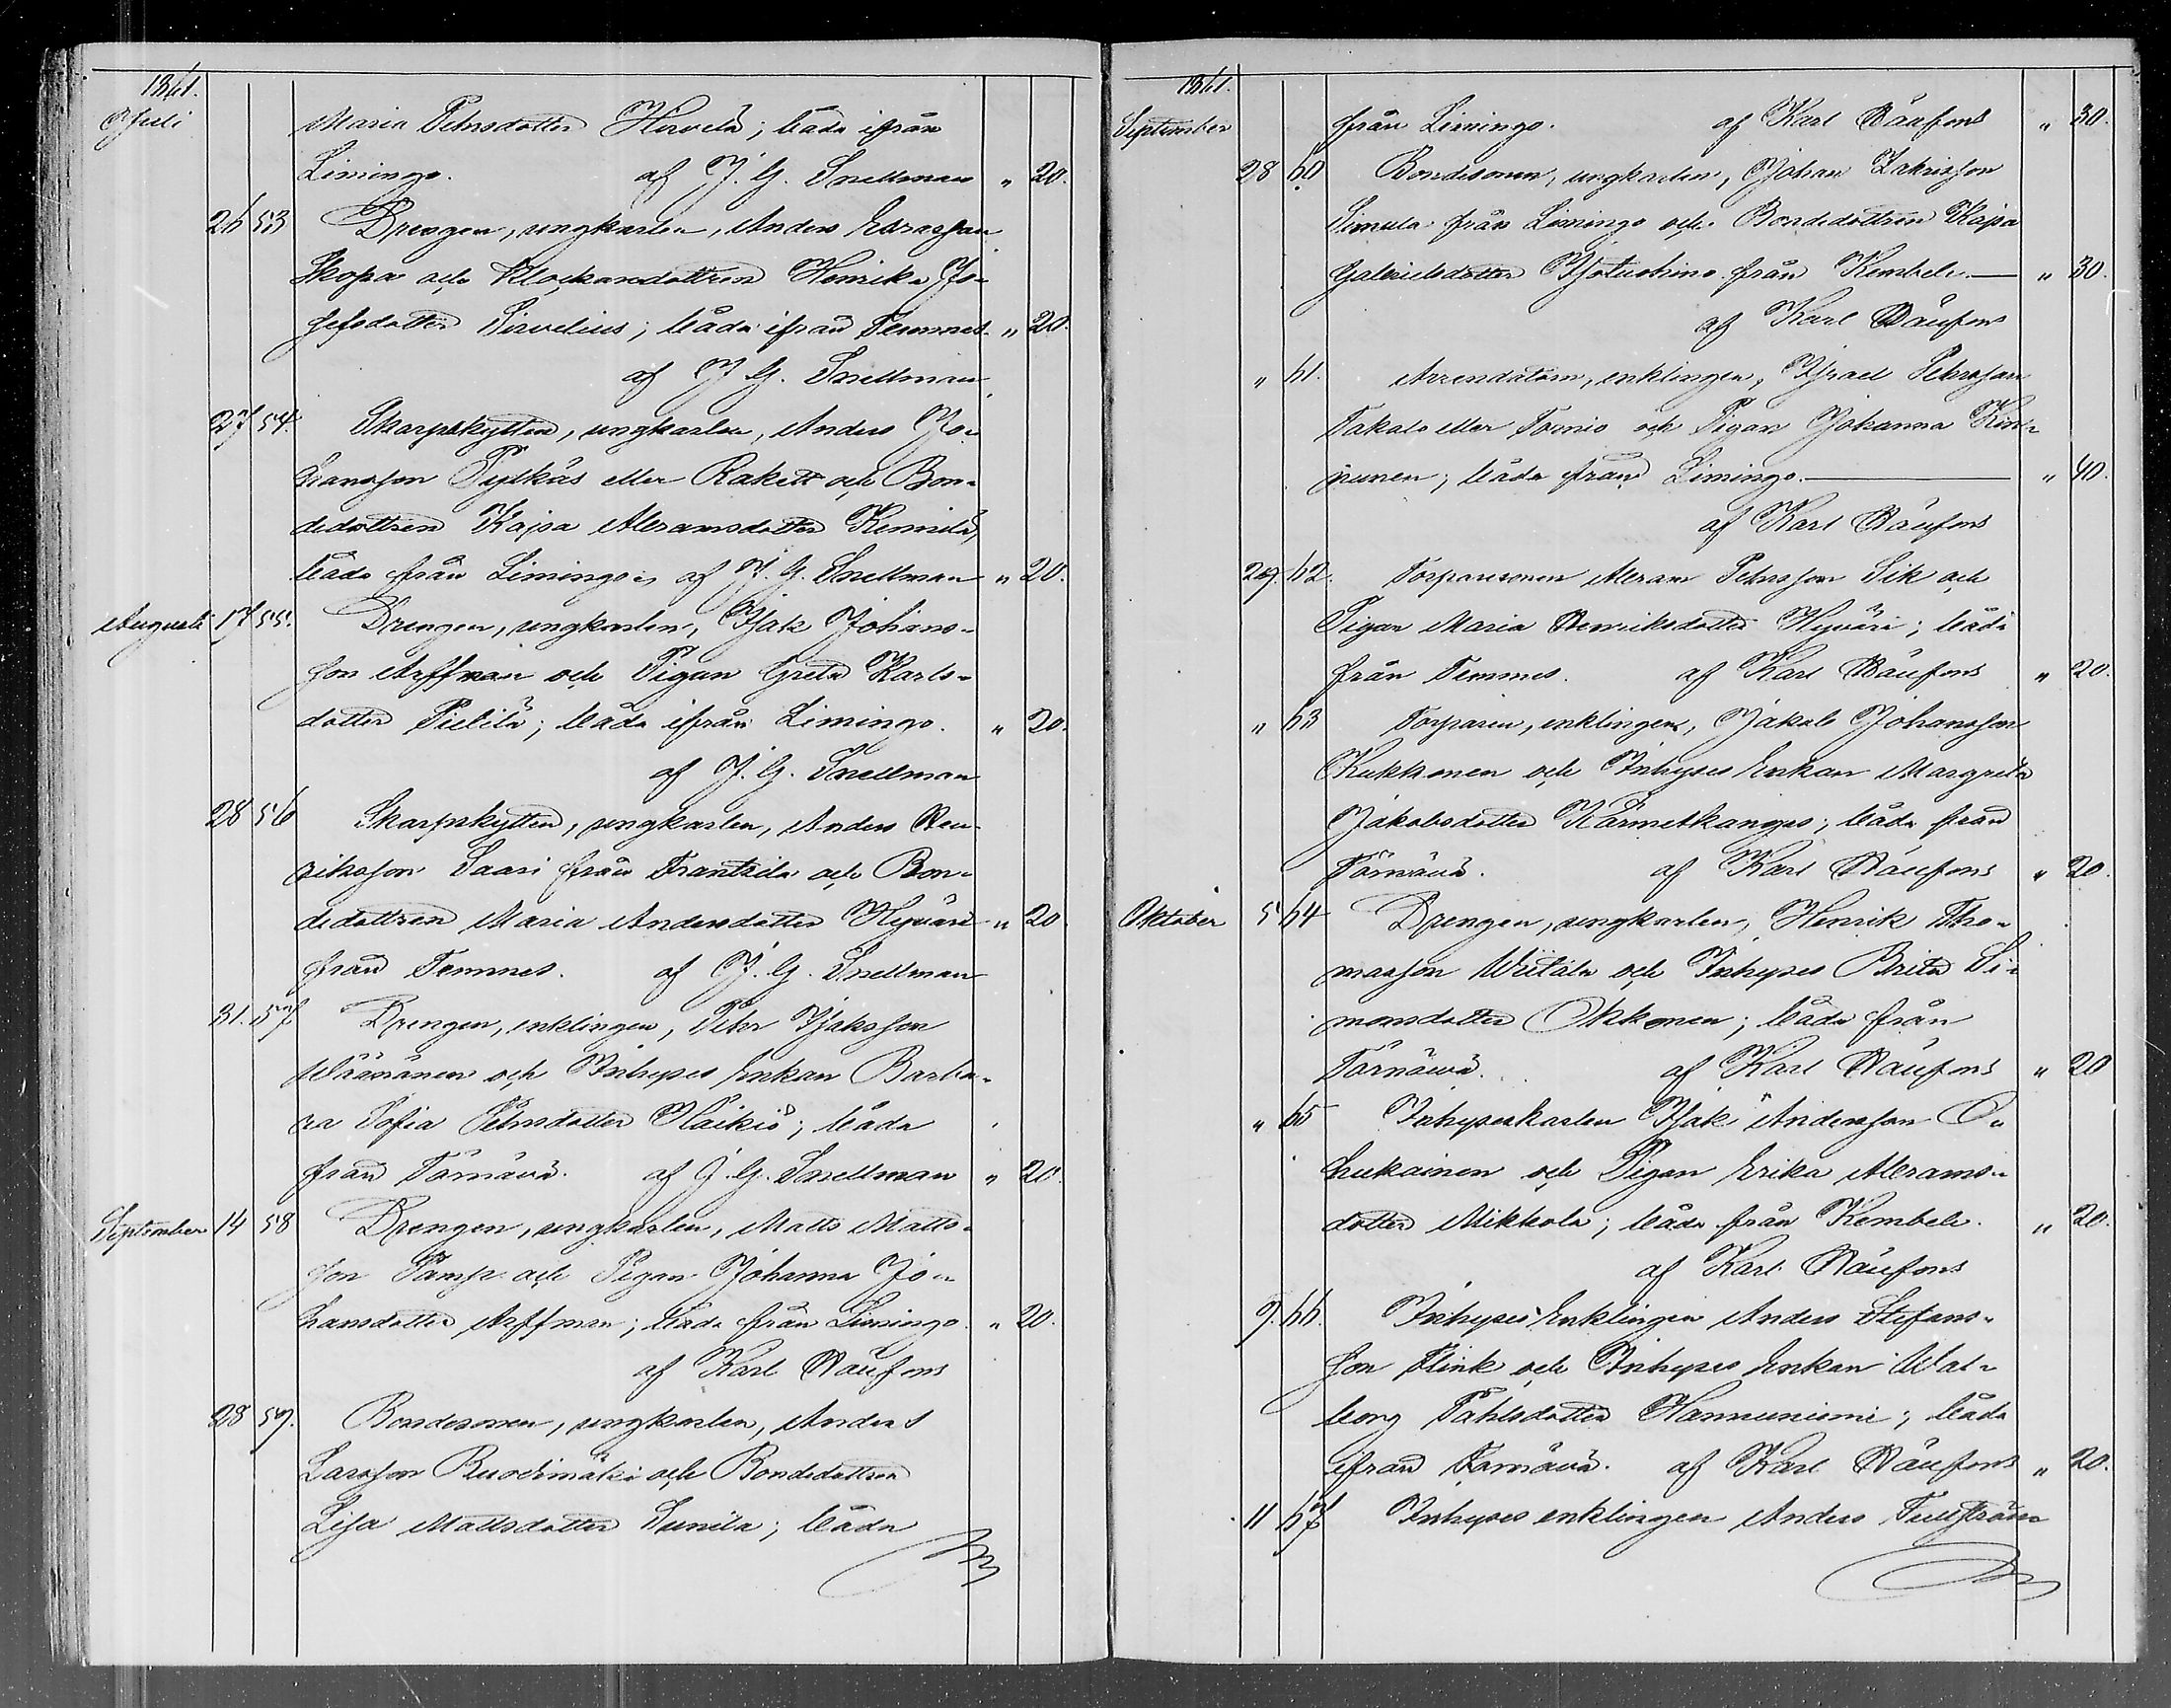 1861.
Juli Maria Pehrsdotter Hervelä; båda ifrån
Limingo. af J. G. Snellman " 20.
26 53 Drengen, ungkarlen, Anders Esrasson
Skopa och Klockaredottren Henrika Jo-
sefsdotter Sirvelius; båda ifrån Temmes. " 20.
af J. G. Snellman
27 54. Skarpskytten, ungkarlen, Anders Jo-
hansson Pytkäs eller Rakett och Bon-
dedottren Kajsa Abramsdotter Kemilä,
båda från Limingo, af J. G. Snellman " 20.
Augusti 17 55. Drengen, ungkarlen, Isak Johans-
son Arffman och Pigan Greta Karls-
dotter Pietilä; båda ifrån Limingo. " 20.
af J. G. Snellman
28 56 Skarpskytten, ungkarlen, Anders Hen-
riksson Saari från Frantsila och Bon-
dedottren Maria Andersdotter Hyväri " 20.
från Temmes. af J. G. Snellman
31. 57 Drengen, enklingen, Pehr Isaksson
Wäänänen och Inhyses Enkan Barba-
ra Sofia Pehrsdotter Häikiö; båda
från Tornävä. af J. G. Snellman " 20.
September 14 58 Drengen, ungkarlen, Matts Matts-
son Pamp och Pigan Johanna Jo-
hansdotter Arffman; båda från Limingo. " 20.
af Karl Väufons
28 59. Bondesonen, ungkarlen, Anders
Larsson Ruodimäki och Bondedottren
Lisa Mattsdotter Junila; båda
1861.
September från Limingo. af Karl Väufons " 30.
28 60 Bondesonen, ungkarlen, Johan Zakrisson
Simula från Limingo och Bondedottren Kajsa
Gabrielsdotter Jotuohino från Kembele. " 30.
af Karl Väufons
" 61. Arrendatorn, enklingen, Israel Pehrsson
Takalo eller Tornio och Pigan Johanna Kin-
nunen; båda från Limingo. " 40.
af Karl Väufons
29. 62. Torparesonen Abram Pehrsson Sik och
Pigan Maria Henriksdotter Hyväri; båda
från Temmes. af Karl Väufons " 20.
" 63 Torparen, enklingen, Jakob Johansson
Kukkonen och Inhyses Enkan Margreta
Jakobsdotter Kärmetkangas; båda från
Tornävä. af Karl Väufons " 20.
Oktober 5 64 Drengen, ungkarlen, Henrik Tho-
masson Wiitala och Inhyses Brita Si-
monsdotter Okkonen; båda från
Tornävä. af Karl Väufons " 20
" 65 Inhyseskarlen Isak Andersson O-
hukainen och Pigan Erika Abrams-
dotter Mikkola; båda från Kembele. " 20.
af Karl Väufons
9. 66. Inhyses Enklingen Anders Stefans-
son Flink och Inhyses Enkan Wal-
borg Påhlsdotter Hannuniemi; båda
ifrån Tornävä. af Karl Väufons " 20.
11 67 Inhyses enklingen Anders